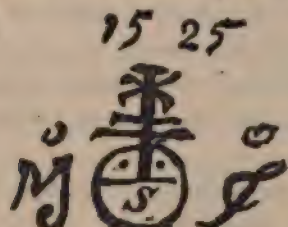 15 25
M S
S